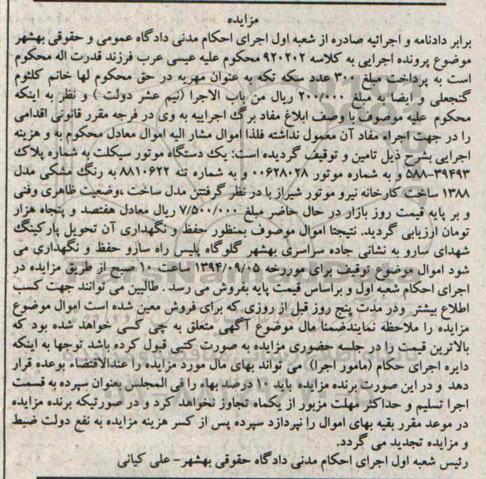 مزایده
برابر دادنامه و اجرائیه صادره از شعبه اول اجرای احکام مدنی دادگاه عمومی و حقوقی بهشهر
موضوع پرونده اجرایی به کلاسه ۹۲۰۲۰۲ محکوم علیه عیسی عرب فرزند قدرت اله محکوم
است به پرداخت مبلغ ۳۰۰ عدد سکه تکه به عنوان مهریه در حق محکوم لها خانم کلثوم
گنجعلی و ایضا به مبلغ ۲۰۰/۰۰۰ ریال من باب الاجرا (نیم عشر دولت ) و نظر به اینکه
محکوم علیه موصوف با وصف ابلاغ مفاد برگ اجراییه به وی در فرجه مقرر قانونی اقدامی
را در جهت اجراء مفاد آن معمول نداشته فلذا اموال مشار الیه اموال معادل محکوم به و هزینه
اجرایی بشرح ذیل تامین و توقیف گردیده است: یک دستگاه موتور سیکلت به شماره پلاک
۳۹۴۹۳-۵۸۸ و به شماره موتور ۰۰۶۲۸۰۲۸ و به شماره تنه ۸۸۱۰۶۲۲ به رنگ مشکی مدل
۱۳۸۸ ساخت کارخانه نیرو موتور شیراز با در نظر گرفتن مدل ساخت ،وضعیت ظاهری وفنی
و بر پایه قیمت روز بازار در حال حاضر مبلغ ۷/۵۰۰/۰۰۰ ریال معادل هفتصد و پنجاه هزار
تومان ارزیابی گردید. نتیجتا اموال موصوف بمنظور حفظ و نگهداری آن تحویل پارکینگ
شهدای سارو به نشانی جاده سراسری بهشهر گلوگاه پلیس راه سارو حفظ و نگهداری می
شود اموال موضوع توقیف برای مورخه ۱۳۹۴/۰۹/۰۵ ساعت ۱۰ صبح از طریق مزایده در
اجرای احکام شعبه اول و براساس قیمت پایه بفروش می رسد . طالبین می توانند جهت کسب
اطلاع بیشتر ودر مدت پنج روز قبل از روزی که برای فروش معین شده است اموال موضوع
مزایده را ملاحظه نمایندضمنا مال موضوع آگهی متعلق به چی کسی خواهد شده بود که
بالاترین قیمت را در جلسه حضوری مزایده به صورت کتبی قبول کرده باشد توجها به اینکه
دایره اجرای حکام (مامور اجرا) می تواند بهای مال مورد مزایده را عندالاقتضاء بوعده قرار
دهد و در این صورت برنده مزایده باید ۱۰ درصد بهاء را فی المجلس بعنوان سپرده به قسمت
اجرا تسلیم و حداکثر مهلت مزبور از یکماه تجاوز نخواهد کرد و در صورتیکه برنده مزایده
در موعد مقرر بقیه بهای اموال را نپردازد سپرده پس از کسر هزینه مزایده به نفع دولت ضبط
و مزایده تجدید می گردد.
رئیس شعبه اول اجرای احکام مدنی دادگاه حقوقی بهشهر- علی کیانی